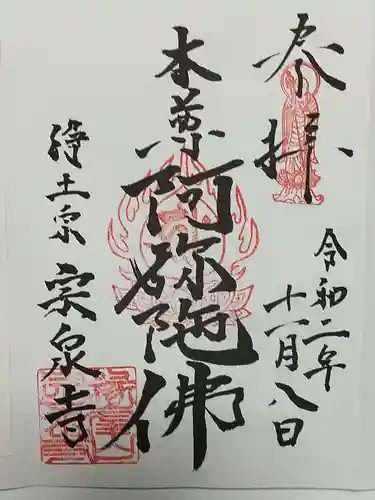 参拝
令和二年
十一月八日
本尊
阿弥陀佛
浄土宗
宗泉寺